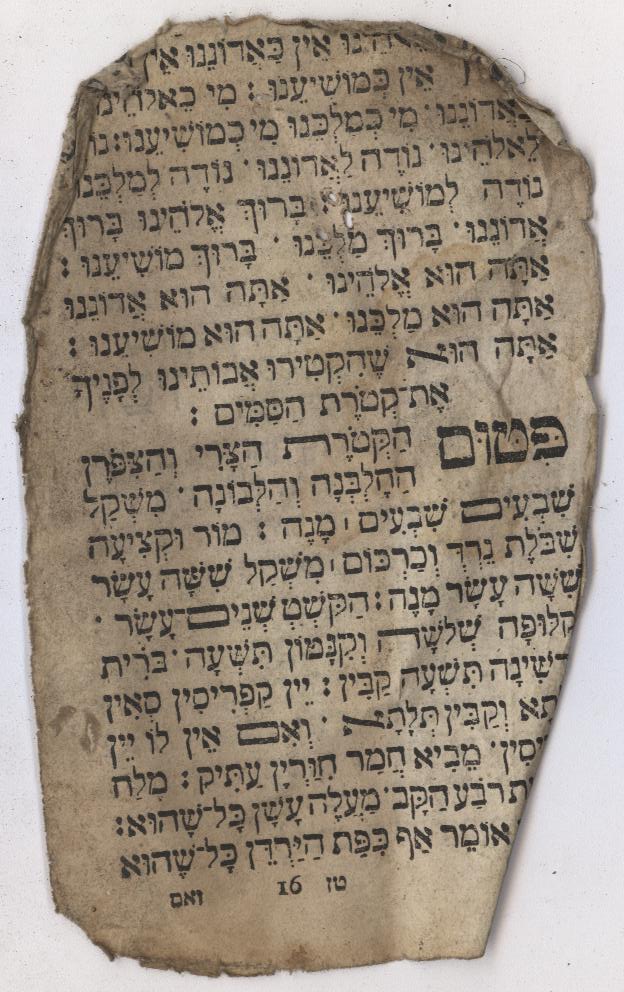 אֵין כֵּאלֹהֵינוּ אֵין כַּאדוֹנֵנוּ אֵין
אֵין כְּמוֹשִׁיעֵנוּ : מִי כֵאלֹהֵינוּ
כַאדוֹנֵנוּ · מִי כְמַלְכֵּנוּ מִי כְמוֹשִׁיעֵנוּ : נוֹדֶה
לֵאלֹהֵינוּ · נוֹדֶה לַאדוֹנֵנוּ · נוֹדֶה לְמַלְכֵּנוּ
נוֹדֶה לְמוֹשִׁיעֵנוּ : בָּרוּךְ אֱלֹהֵינוּ בָּרוּךְ
אֲדוֹנֵנוּ · בָּרוּךְ מַלְכֵּנוּ · בָּרוּךְ מוֹשִׁיעֵנוּ :
אַתָּה הוּא אֱלֹהֵינוּ · אַתָּה הוּא אֲדוֹנֵנוּ
אַתָּה הוּא מַלְכֵּנוּ · אַתָּה הוּא מוֹשִׁיעֵנוּ :
אַתָּה הוּא שֶׁהִקְטִירוּ אֲבוֹתֵינוּ לְפָנֶיךָ
אֶת־קְטֹרֶת הַסַּמִּים :
פִּטּוּם הַקְּטֹרֶת הַצֳּרִי וְהַצִּפֹּרֶן
הַחֶלְבְּנָה וְהַלְּבוֹנָה · מִשְׁקַל
שִׁבְעִים שִׁבְעִים מָנֶה : מוֹר וּקְצִיעָה
שִׁבֹּלֶת נֵרְדְּ וְכַרְכּוֹם מִשְׁקַל שִׁשָּׁה עָשָׂר
שִׁשָּׁה עָשָׂר מָנֶה : הַקֹּשְׁטְ שְׁנֵים־עָשָׂר ·
קִלּוּפָה שְׁלֹשָׁה וְקִנָּמוֹן תִּשְׁעָה · בֹּרִית
כַּרְשִׁינָה תִּשְׁעָה קַבִּין : יֵין קַפְרִיסִין סְאִין
תְּלָתָא וְקַבִּין תְּלָתָא · וְאִם אֵין לוֹ יֵין
קַפְרִיסִין · מֵבִיא חֲמַר חִוַּרְיָן עַתִּיק : מֶלַח
סְדוֹמִית רֹבַע הַקָּב · מַעֲלֶה עָשָׁן כָּל־שֶׁהוּא :
אוֹמֵר אַף כִּפַּת הַיַּרְדֵּן כָּל־שֶׁהוּא
טז 16 ואם